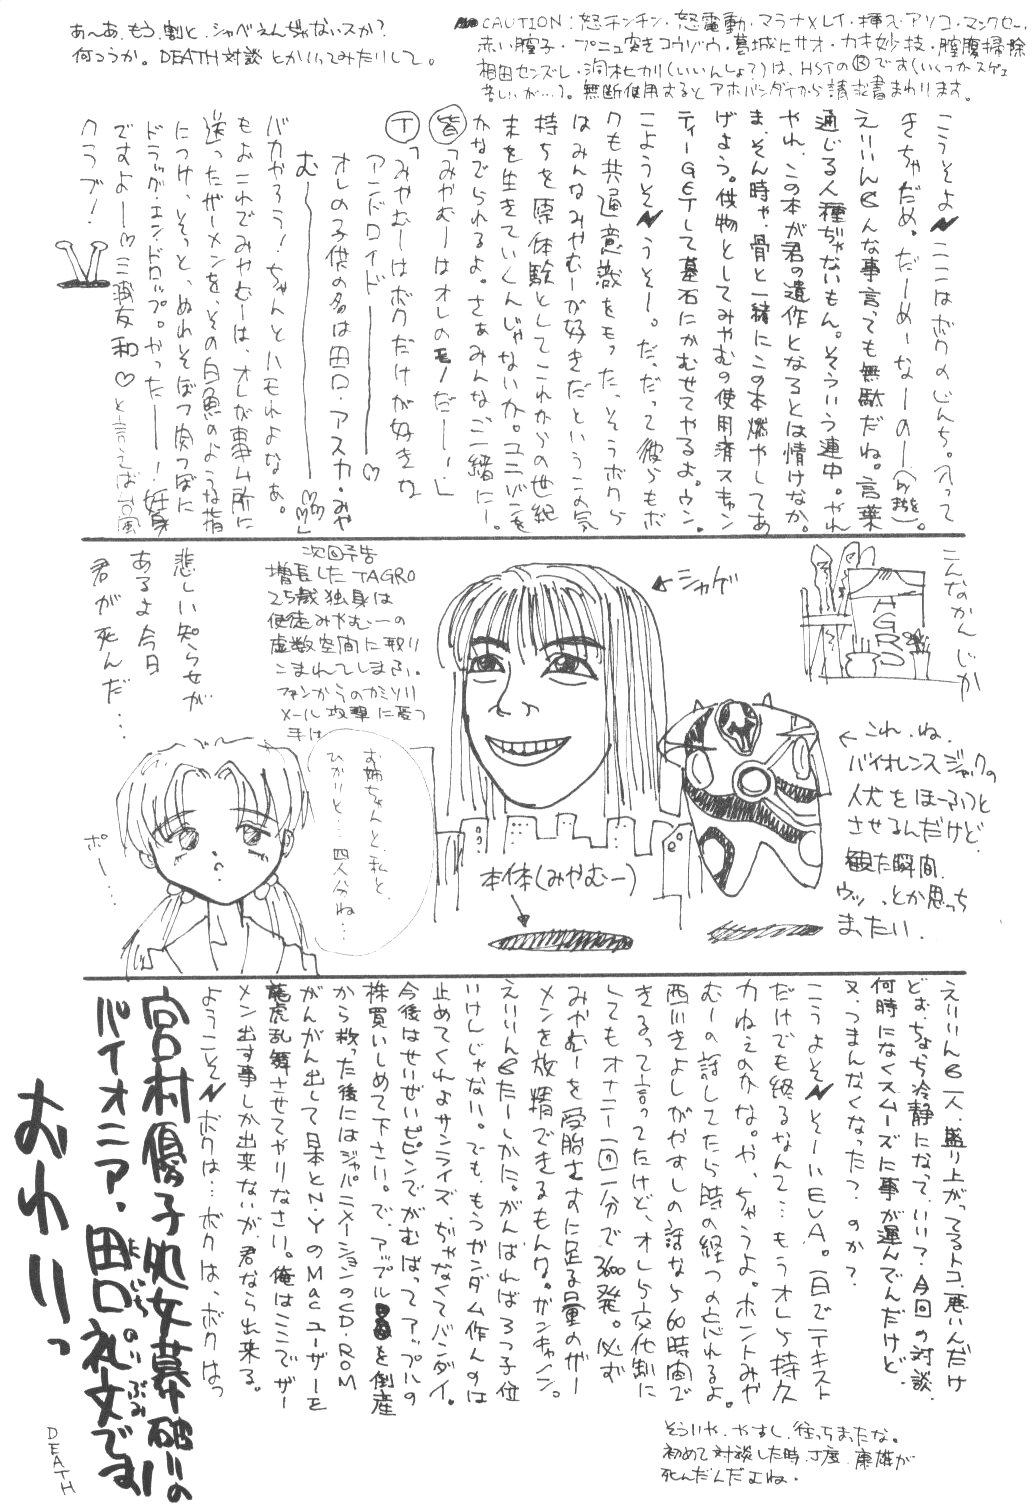 あ～あ、もう、割と、シャベえんぢゃないスか?
何つうか。DEATH対談とかいってみたりして。
CAUTION:怒チンチン・怒電動・マラナ×レイ・挿入・アソコ・マンクセー・
赤い膣子・プニュ突きコウゾウ・葛城にサオ・カキ妙技・膣腹掃除
相田センズレ・洞木ヒカリ(いいんしょ?)は、HSTのⓇです(いくつかスゲェ
苦しいが…)。無断使用するとアホバンダイから請求書まわります。
こうそよ
ここはボクのじんち。入って
きちゃだめ。だーめーなーのー
えりいん6んな事言っても無駄だね。言葉
通じる人種ぢゃないもん。そういう連中。やれ
やれ、この本が君の遺作となるとは情けなか。
ま、そん時ゃ、骨と一緒にこの本燃やしてあ
げよう。供物としてみやむの使用済スキャン
ティーGETして墓石にかむせてやるよ。ウン。
こようそ
うそー。だ、だって彼らもボ
クも共通意識をもった、そうボクら
はみんなみやむーが好きだというこの気
持ちを原体験としてこれからの世紀
末を生きていくんじゃないか。ユニゾンを
かなでられるよ。さぁみんなご一緒にー。
皆「みやむーはオレのモノだーー!」
T「みやむーはボクだけが好きな
アンドロイド――♡
オレの子供の名は田口・アスカ・みや
む――♡♡♡」
バカやろう!ちゃんとハモれよなぁ。
もぉこれでみやむーは、オレが事ム所に
送ったザーメンを、その白魚のような指
につけ、そっと、ぬれそぼつ肉つぼに
ドラッグ・エンドロップ。やったー――!妊娠
ですよー――♡三浦友和♡と言えば台風
クラブ!
こんなかんじか
TAGRO
←シャゲ
←これ、ね、
バイオレンスジャックの
人犬をほーふつと
させるんだけど、
観た瞬間、
ウッ…っとか思っち
まったい。
本体(みやむー)
次回予告
増長したTAGRO
25歳独身は
使徒みやむーの
虚数空間に取り
こまれてしまふ。
ファンからのカミソリ
メール攻撃に憂つ
手は
お姉ちゃんと、私と、
ひかりと…四人分ね…
悲しい知らせが
あるよ今日
君が死んだ…
ポー…
えりいん6一人、盛り上がってるトコ、悪いんだけ
ど、も、ちょち冷静になって、いい?今回の対談、
何時になくスムーズに事が運んでんだけど、
又、つまんなくなったっ?のか?
こうよそ
そーいEVA。一日でテキスト
だけでも終るなんて…もうオレら持久
力ねぇのかな。や、ちゃうよ。ホントみや
むーの話してたら時の経つの忘れるよ。
西川きよしがやすしの話なら60時間で
きるって言ってたけど、オレら交代制に
してもオナニー一回一分で3600発。必ず
みやむーを受胎さすに足る量のザー
メンを放精できるもんな。ガンキャノン。
えりいん6たーしかにがんばればろっ子位
いけんじゃない。でも、もうガンダム作んのは
止めてくれよサンライズ、ぢゃなくてバンダイ。
今後はせいぜいピピンでがむばってアップルの
株買いしめて下さい。で、アップルを倒産
から救った後にはジャパニメーションのCD-ROM
がんがん出して日本とN.Y.のMacユーザーを
龍虎乱舞させてやりなさい。俺はここでザー
メン出す事しか出来ないが、君なら出来る。
ようこそ
ボクは…ボクは、ボクはっ
宮村優子処女墓破りの
パイオニア、田口礼文です
おわりっ
DEATH
そういや、やすし、往っちまったな。
初めて対談した時、丁度、康雄が
死んだんだよね。